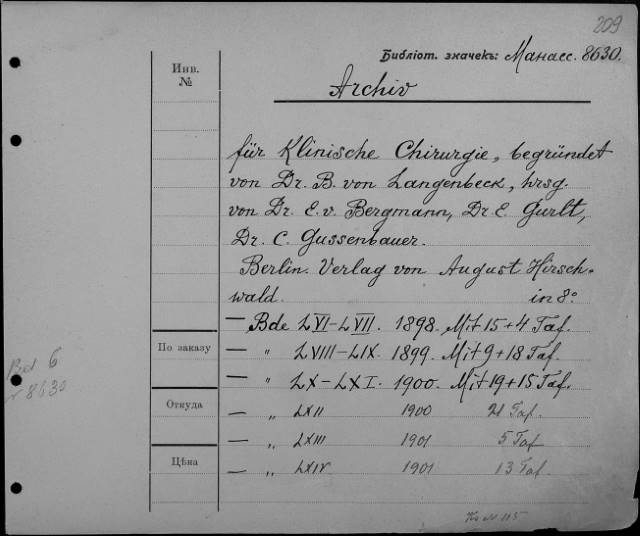 209
Библіот. значекъ: Манасс. 8630.
Инв.
№
Archiv
für Klinische Chirurgie, begründet
von Dr. B. von Langenbeck, hrsg.
von Dr. E. v. Bergmann, Dr. E. Gurlt,
Dr. C. Gussenbauer.
Berlin. Verlag von August Hirsch-
wald. in 8°
— Bde LVI–LVII. 1898. Mit 15 + 4 Taf.
По заказу
— „ LVIII–LIX. 1899. Mit 9 + 18 Taf.
— „ LX–LXI. 1900. Mit 19 + 15 Taf.
Откуда
— „ LXII 1900 21 Taf.
— „ LXIII 1901 5 Taf
Цѣна
— „ LXIV 1901 13 Taf.
6
8630